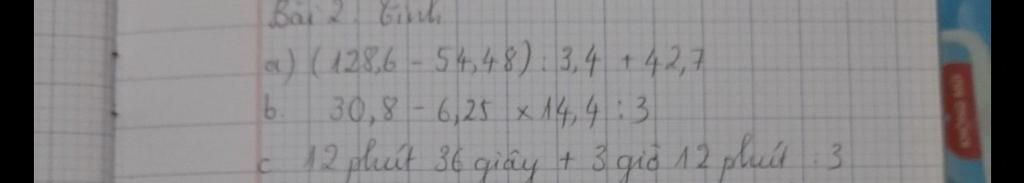 Bài 2. Tính
a) (128,6 - 54,48) : 3,4 + 42,7
b. 30,8 - 6,25 x 14,4 : 3
c 12 phút 36 giây + 3 giờ 12 phút : 3